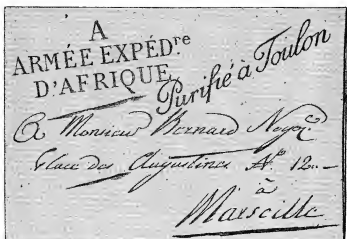 A
ARMÉE EXPÉD.re
D'AFRIQUE
Purifié à Toulon
A Monsieur Bernard Negot
Place des Augustines No 12
à
Marseille